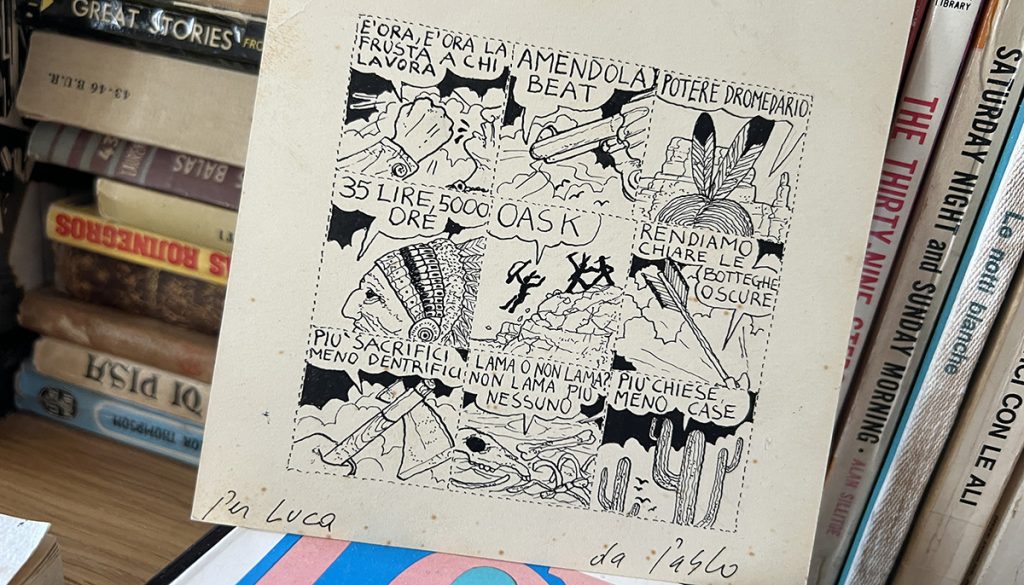 GREAT STORIES
43-46 B.U.R.
BALAS
ROJINEGROS
DI PISA
DR THOMPSON
E' ORA, E' ORA LA
FRUSTA A CHI
LAVORA
AMENDOLA
BEAT
POTERE DROMEDARIO
35 LIRE, 5000
DRÈ
OASK
RENDIAMO
CHIARE LE
BOTTEGHE
OSCURE
PIU' SACRIFICI
MENO DENTRIFICI
LAMA O NON LAMA?
NON LAMA PIÙ
NESSUNO
PIU' CHIESE,
MENO CASE
Per Luca
da Pablo
LIBRARY
THE THIRTY-NINE STEP
SATURDAY NIGHT and SUNDAY MORNING • ALAN SILLITOE
Le notti bianche
CI CON LE ALI